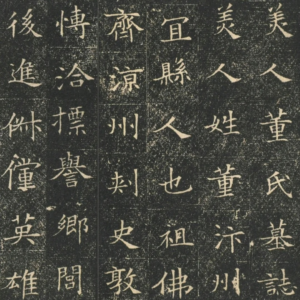 美人董氏墓誌
美人姓董汴州
冝縣人也祖佛
齊涼州刾史敦
愽洽摽譽鄉閭
後進俶儻英雄